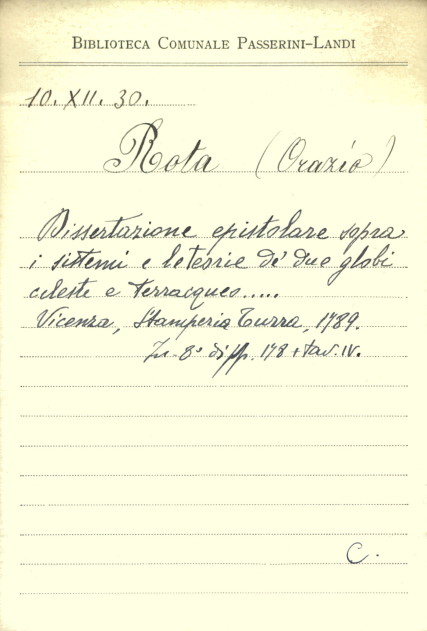 BIBLIOTECA COMUNALE PASSERINI-LANDI
10. XII. 30.
Rota (Orazio)
Dissertazione epistolare sopra
i sistemi e le teorie de' due globi
celeste e terracqueo.....
Vicenza, Stamperia Turra, 1789.
In-8° di pp. 178 + tav. IV.
C.